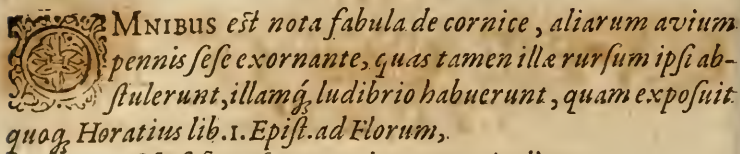 OMNIBUS eſt nota fabula de cornice, aliarum avium
pennis ſeſe exornante, quas tamen illæ rurſum ipſi ab-
ſtulerunt, illamq́; ludibrio habuerunt, quam expoſuit
quoq; Horatius lib. 1. Epiſt. ad Florum,